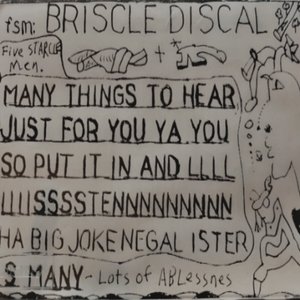 fsm: BRISCLE DISCAL
Five STARCLE
Men.
+
MANY THINGS TO HEAR
JUST FOR YOU YA YOU
SO PUT IT IN AND LLLL
IIIISSSSTENNNNNNNNN
HA BIG JOKE NEGAL ISTER
S MANY - Lots of ABLessnes